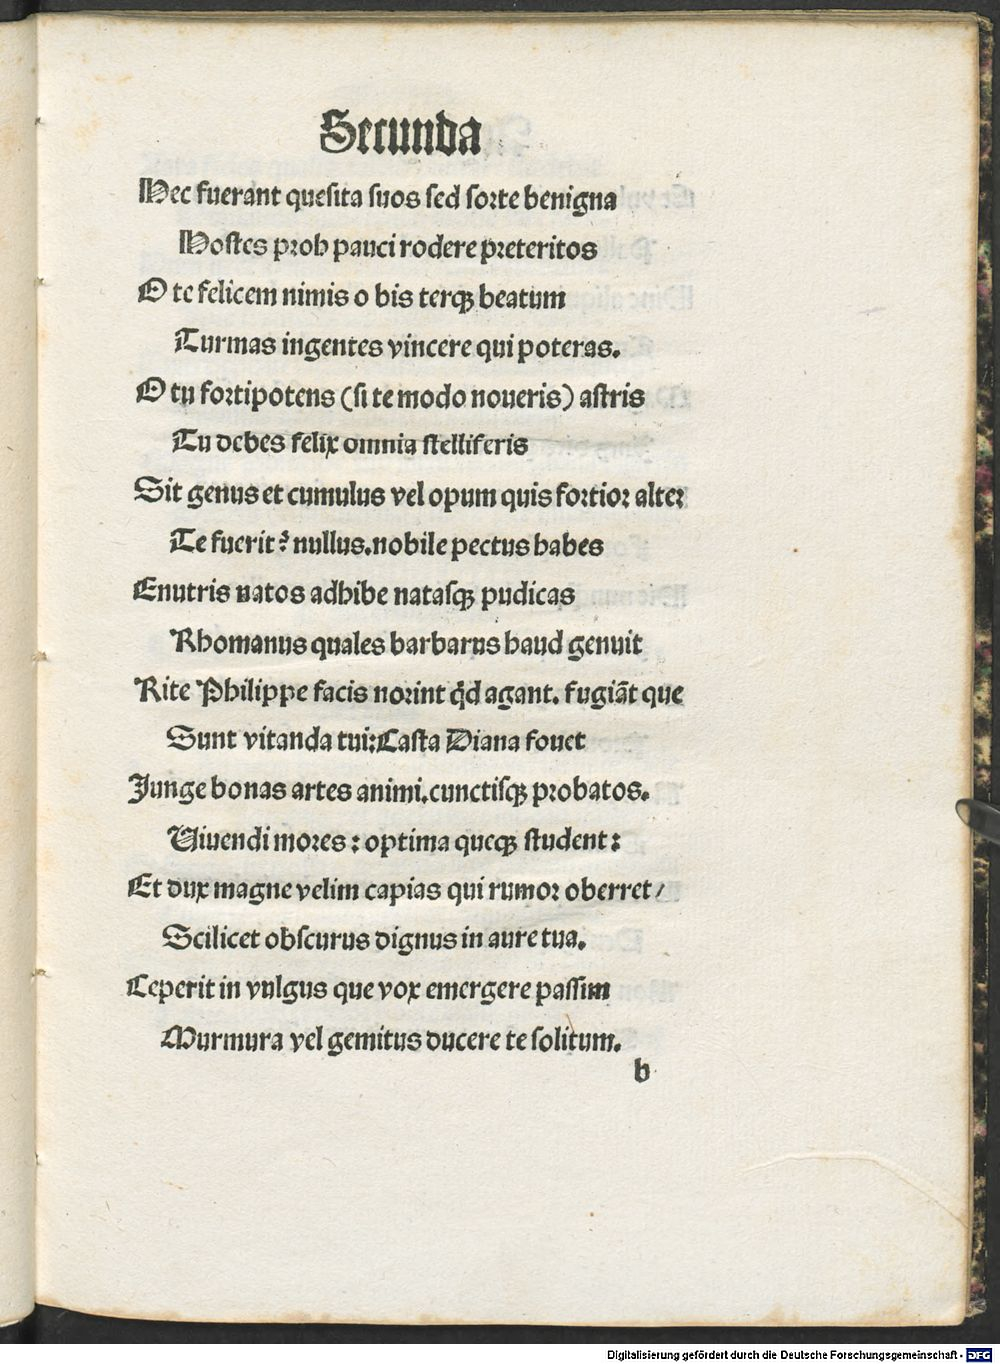 Secunda
Hec fuerant quesita suos sed sorte benigna
Hostes proh pauci rodere preteritos
O te felicem nimis o bis terqꝫ beatum
Turmas ingentes vincere qui poteras.
O tu fortipotens (si te modo noueris) astris
Tu debes felix omnia stelliferis
Sit genus et cumulus vel opum quis fortior alter
Te fuerit? nullus.nobile pectus habes
Enutris natos adhibe natasqꝫ pudicas
Rhomanus quales barbarus haud genuit
Rite Philippe facis norint qd agant. fugiāt que
Sunt vitanda tui:Casta Diana fouet
Junge bonas artes animi.cunctisqꝫ probatos.
Uiuendi mores: optima queqꝫ student:
Et dux magne velim capias qui rumor oberret/
Scilicet obscurus dignus in aure tua.
Ceperit in vulgus que vox emergere passim
Murmura vel gemitus ducere te solitum.
b
Digitalisierung gefördert durch die Deutsche Forschungsgemeinschaft - DFG